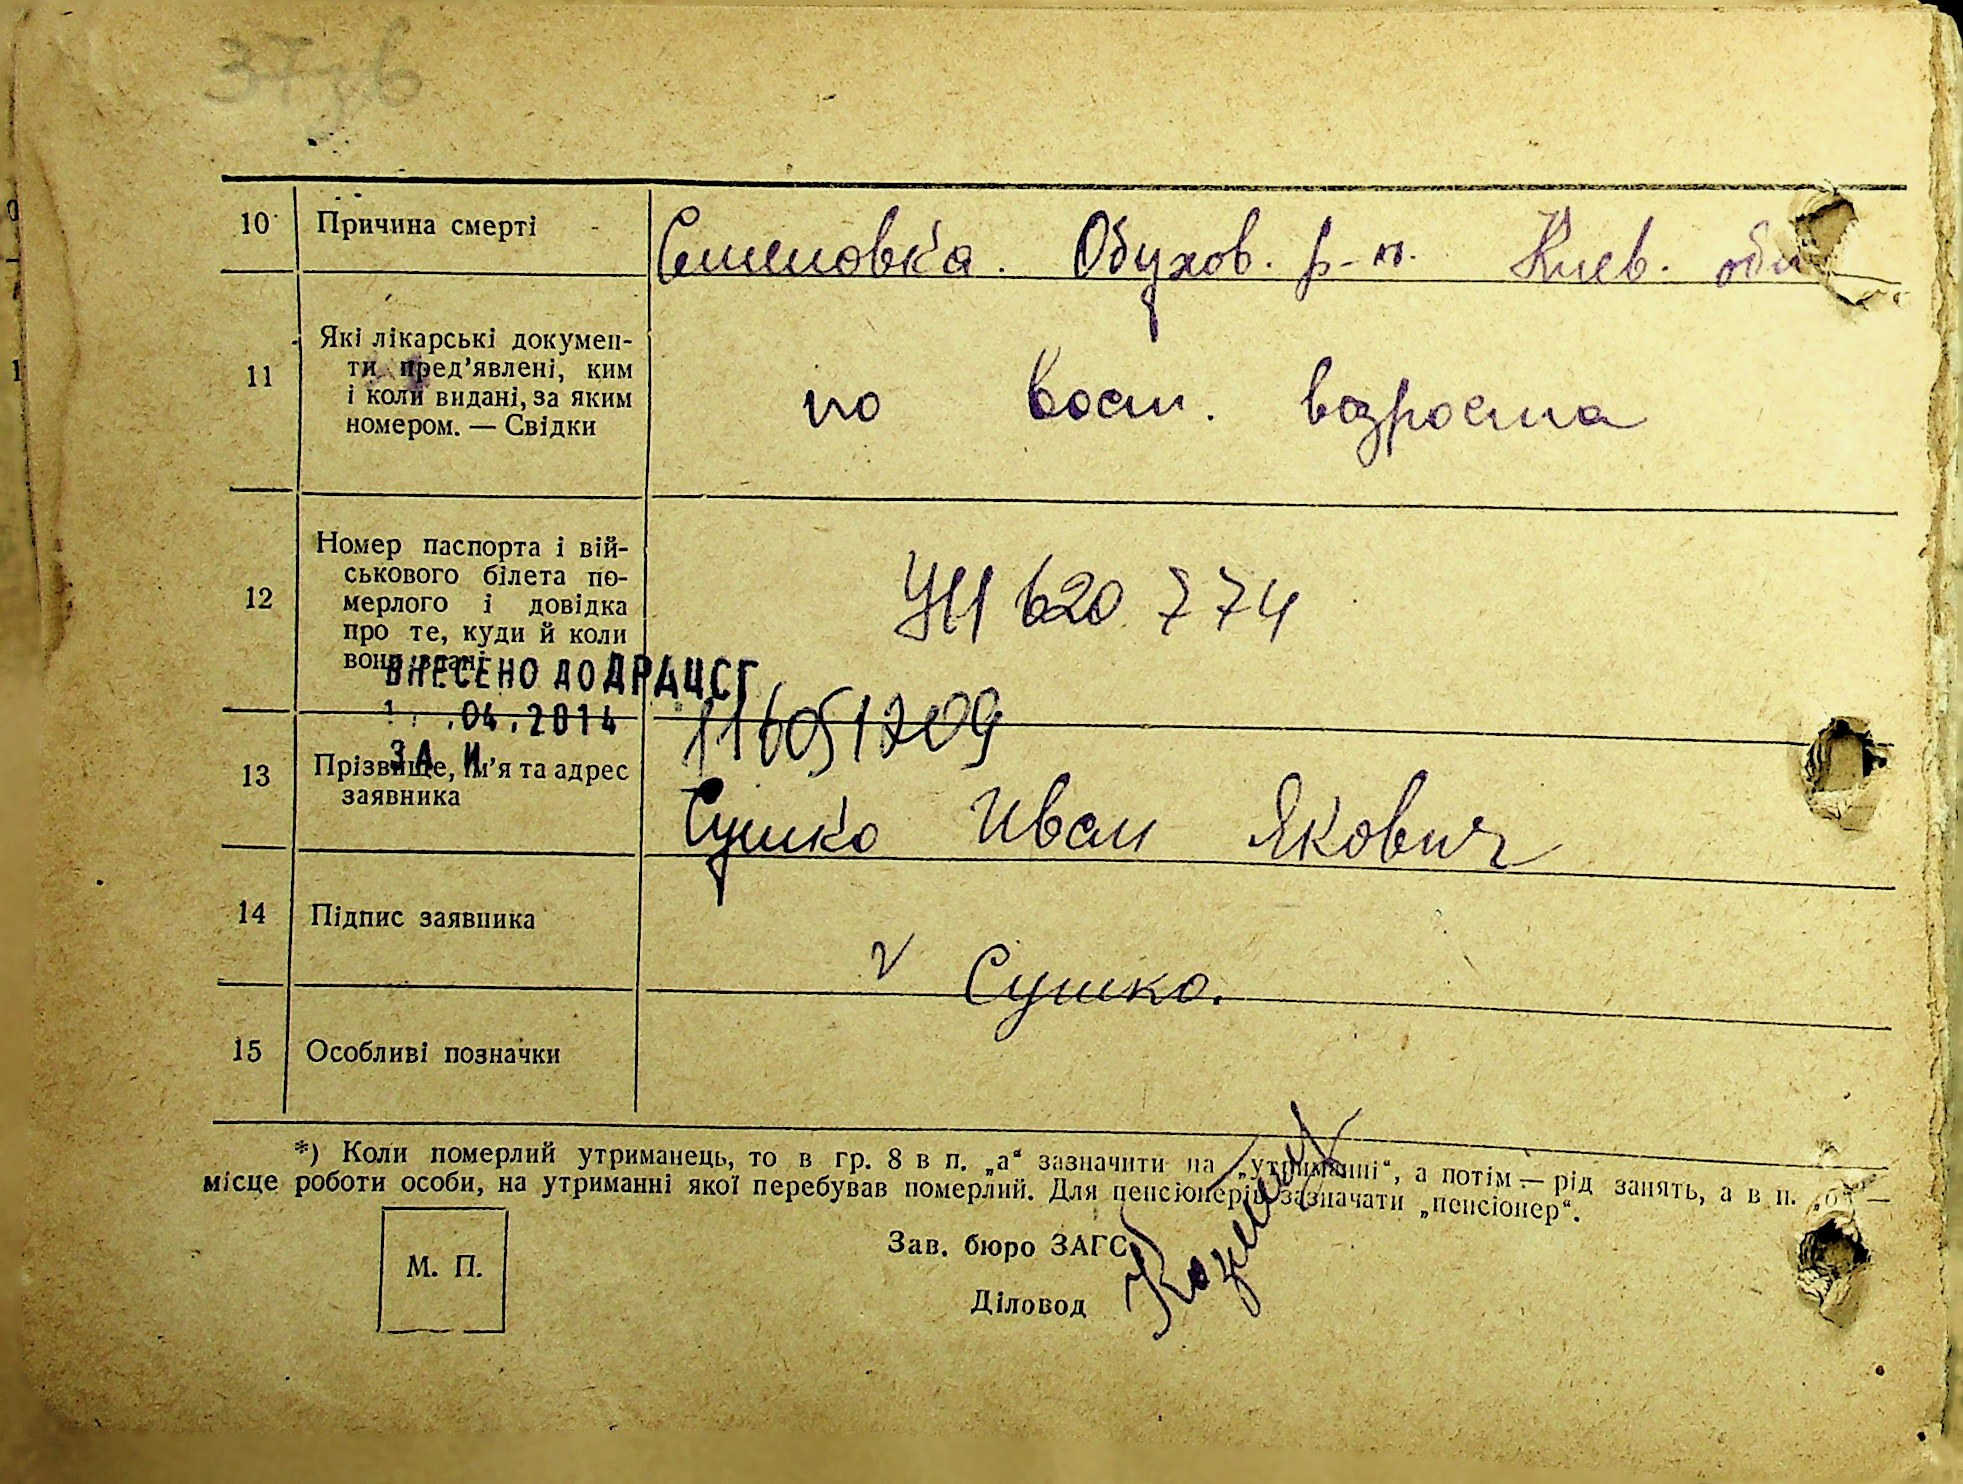 37
10 Причина смерті Семеновка. Обухов. р-н. Киев. обл
11 Які лікарські докумен-
ти пред’явлені, ким
і коли видані, за яким
номером. — Свідки
по вост. возроста
12 Номер паспорта і вій-
ськового білета по-
мерлого і довідка
про те, куди й коли
вони здані
УН 620 774
ВНЕСЕНО ДО ДРАЦСГ
.04.2014
ЗА №
116051209
13 Прізвище, ім’я та адрес
заявника
Сушко Иван Якович
14 Підпис заявника
v Сушко.
15 Особливі позначки
*) Коли померлий утриманець, то в гр. 8 в п. „а“ зазначити на „утриманні“, а потім — рід занять, а в п. „б“ —
місце роботи особи, на утриманні якої перебував померлий. Для пенсіонерів зазначати „пенсіонер“.
М. П.
Зав. бюро ЗАГС
Діловод